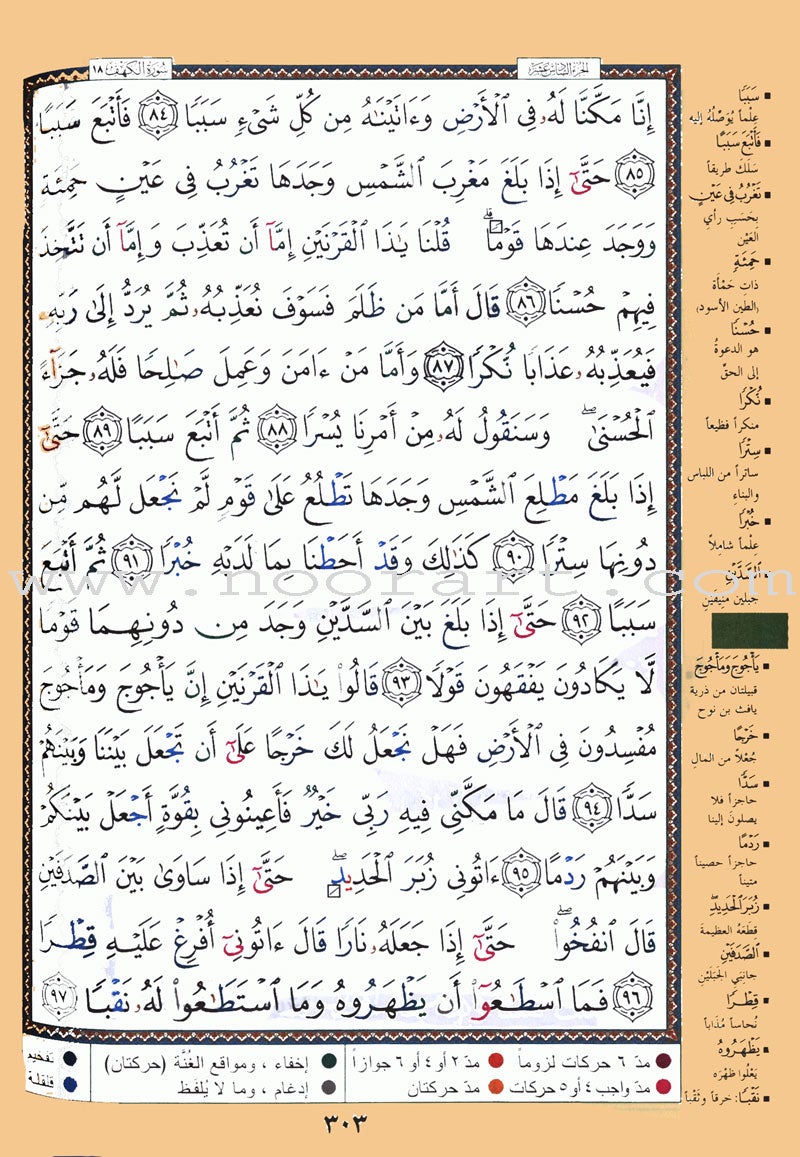 الجزء السادس عشر
سورة الكهف ١٨
إِنَّا مَكَّنَّا لَهُۥ فِى ٱلْأَرْضِ وَءَاتَيْنَٰهُ مِن كُلِّ شَىْءٍ سَبَبًا ٨٤ فَأَتْبَعَ سَبَبًا
٨٥ حَتَّىٰٓ إِذَا بَلَغَ مَغْرِبَ ٱلشَّمْسِ وَجَدَهَا تَغْرُبُ فِى عَيْنٍ حَمِئَةٍ
وَوَجَدَ عِندَهَا قَوْمًا ۗ قُلْنَا يَٰذَا ٱلْقَرْنَيْنِ إِمَّآ أَن تُعَذِّبَ وَإِمَّآ أَن تَتَّخِذَ
فِيهِمْ حُسْنًا ٨٦ قَالَ أَمَّا مَن ظَلَمَ فَسَوْفَ نُعَذِّبُهُۥ ثُمَّ يُرَدُّ إِلَىٰ رَبِّهِۦ
فَيُعَذِّبُهُۥ عَذَابًا نُّكْرًا ٨٧ وَأَمَّا مَنْ ءَامَنَ وَعَمِلَ صَٰلِحًا فَلَهُۥ جَزَآءً
ٱلْحُسْنَىٰ ۖ وَسَنَقُولُ لَهُۥ مِنْ أَمْرِنَا يُسْرًا ٨٨ ثُمَّ أَتْبَعَ سَبَبًا ٨٩ حَتَّىٰٓ
إِذَا بَلَغَ مَطْلِعَ ٱلشَّمْسِ وَجَدَهَا تَطْلُعُ عَلَىٰ قَوْمٍ لَّمْ نَجْعَل لَّهُم مِّن
دُونِهَا سِتْرًا ٩٠ كَذَٰلِكَ وَقَدْ أَحَطْنَا بِمَا لَدَيْهِ خُبْرًا ٩١ ثُمَّ أَتْبَعَ
سَبَبًا ٩٢ حَتَّىٰٓ إِذَا بَلَغَ بَيْنَ ٱلسَّدَّيْنِ وَجَدَ مِن دُونِهِمَا قَوْمًا
لَّا يَكَادُونَ يَفْقَهُونَ قَوْلًا ٩٣ قَالُوا۟ يَٰذَا ٱلْقَرْنَيْنِ إِنَّ يَأْجُوجَ وَمَأْجُوجَ
مُفْسِدُونَ فِى ٱلْأَرْضِ فَهَلْ نَجْعَلُ لَكَ خَرْجًا عَلَىٰٓ أَن تَجْعَلَ بَيْنَنَا وَبَيْنَهُمْ
سَدًّا ٩٤ قَالَ مَا مَكَّنِّى فِيهِ رَبِّى خَيْرٌ فَأَعِينُونِى بِقُوَّةٍ أَجْعَلْ بَيْنَكُمْ
وَبَيْنَهُمْ رَدْمًا ٩٥ ءَاتُونِى زُبَرَ ٱلْحَدِيدِ ۖ حَتَّىٰٓ إِذَا سَاوَىٰ بَيْنَ ٱلصَّدَفَيْنِ
قَالَ ٱنفُخُوا۟ ۖ حَتَّىٰٓ إِذَا جَعَلَهُۥ نَارًا قَالَ ءَاتُونِىٓ أُفْرِغْ عَلَيْهِ قِطْرًا
٩٦ فَمَا ٱسْطَٰعُوٓا۟ أَن يَظْهَرُوهُ وَمَا ٱسْتَطَٰعُوا۟ لَهُۥ نَقْبًا ٩٧
▪ سَبَبًا
عِلْماً يُوَصِّلُهُ إليه
▪ فَأَتْبَعَ سَبَبًا
سَلَكَ طريقاً
▪ تَغْرُبُ فِى عَيْنٍ
بِحَسَبِ رأي
العَيْن
▪ حَمِئَةٍ
ذاتِ حَمْأة
(الطين الأسود)
▪ حُسْنًا
هو الدعوةُ
إلى الحقّ
▪ نُكْرًا
منكراً فظيعاً
▪ سِتْرًا
ساتراً من اللباس
والبناءِ
▪ خُبْرًا
عِلْماً شامِلاً
▪ ٱلسَّدَّيْنِ
جبلين منيفين
▪ يَأْجُوجَ وَمَأْجُوجَ
قبيلتان من ذرية
يافث بن نوح
▪ خَرْجًا
جُعْلاً من المالِ
▪ سَدًّا
حاجزاً فلا
يصلونَ إلينا
▪ رَدْمًا
حاجزاً حصيناً
متيناً
▪ زُبَرَ ٱلْحَدِيدِ
قِطَعَهُ العظيمةَ
▪ ٱلصَّدَفَيْنِ
جانبي الجَبَلَيْنِ
▪ قِطْرًا
نُحاساً مُذاباً
▪ يَظْهَرُوهُ
يَعْلُوا ظَهْرَه
▪ نَقْبًا: خرقاً وثَقْباً
مدّ ٦ حركات لزوماً مدّ ٢ أو ٤ أو ٦ جوازاً إخفاء ، ومواقع الغُنَّة (حركتان) تفخيم
مدّ واجب ٤ أو ٥ حركات مدّ حركتان إدغام ، وما لا يُلفظ قلقلة
٣٠٣
www.noorart.com